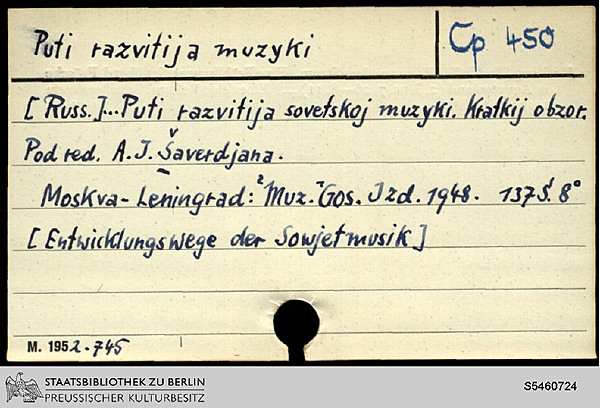 Puti razvitija muzyki
Cp 450
[Russ.]...Puti razvitija sovetskoj muzyki. Kratkij obzor.
Pod red. A. J. Šaverdjana.
Moskva-Leningrad: ²Muz.-¹Gos. Izd. 1948. 137 S. 8°
[Entwicklungswege der Sowjetmusik]
M. 1952.745
STAATSBIBLIOTHEK ZU BERLIN
PREUSSISCHER KULTURBESITZ
S5460724